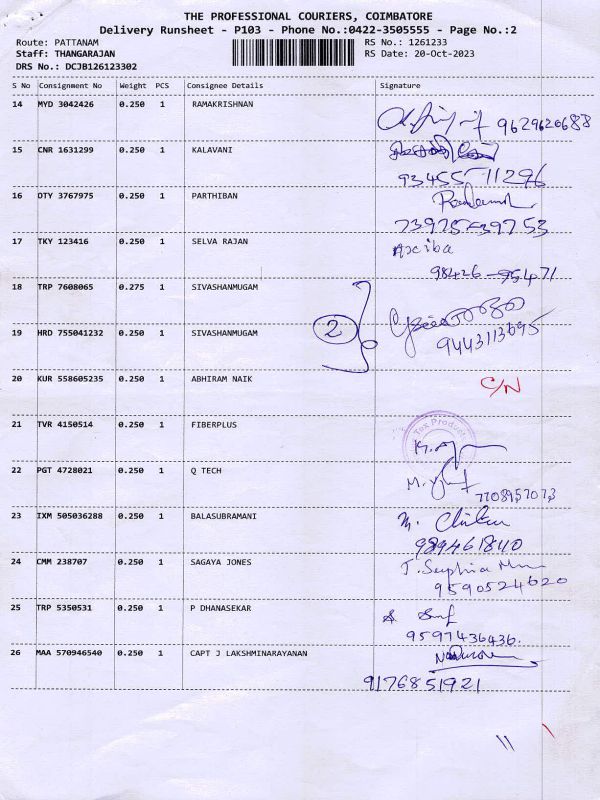 THE PROFESSIONAL COURIERS, COIMBATORE
Delivery Runsheet - P103 - Phone No.:0422-3505555 - Page No.:2
Route: PATTANAM
RS No.: 1261233
Staff: THANGARAJAN
RS Date: 20-Oct-2023
DRS No.: DCJB126123302
S No Consignment No Weight PCS Consignee Details Signature
14 MYD 3042426 0.250 1 RAMAKRISHNAN
9629620688
15 CNR 1631299 0.250 1 KALAVANI
93455-11296
16 OTY 3767975 0.250 1 PARTHIBAN
73975-39753
17 TKY 123416 0.250 1 SELVA RAJAN
98426-95471
18 TRP 7608065 0.275 1 SIVASHANMUGAM
2
19 HRD 755041232 0.250 1 SIVASHANMUGAM
9443113695
20 KUR 558605235 0.250 1 ABHIRAM NAIK C/N
21 TVR 4150514 0.250 1 FIBERPLUS
Tex Product
22 PGT 4728021 0.250 1 Q TECH
7708957073
23 IXM 505036288 0.250 1 BALASUBRAMANI
989461840
24 CMM 238707 0.250 1 SAGAYA JONES
9590524620
25 TRP 5350531 0.250 1 P DHANASEKAR
9597436436.
26 MAA 570946540 0.250 1 CAPT J LAKSHMINARAYANAN
9176851921